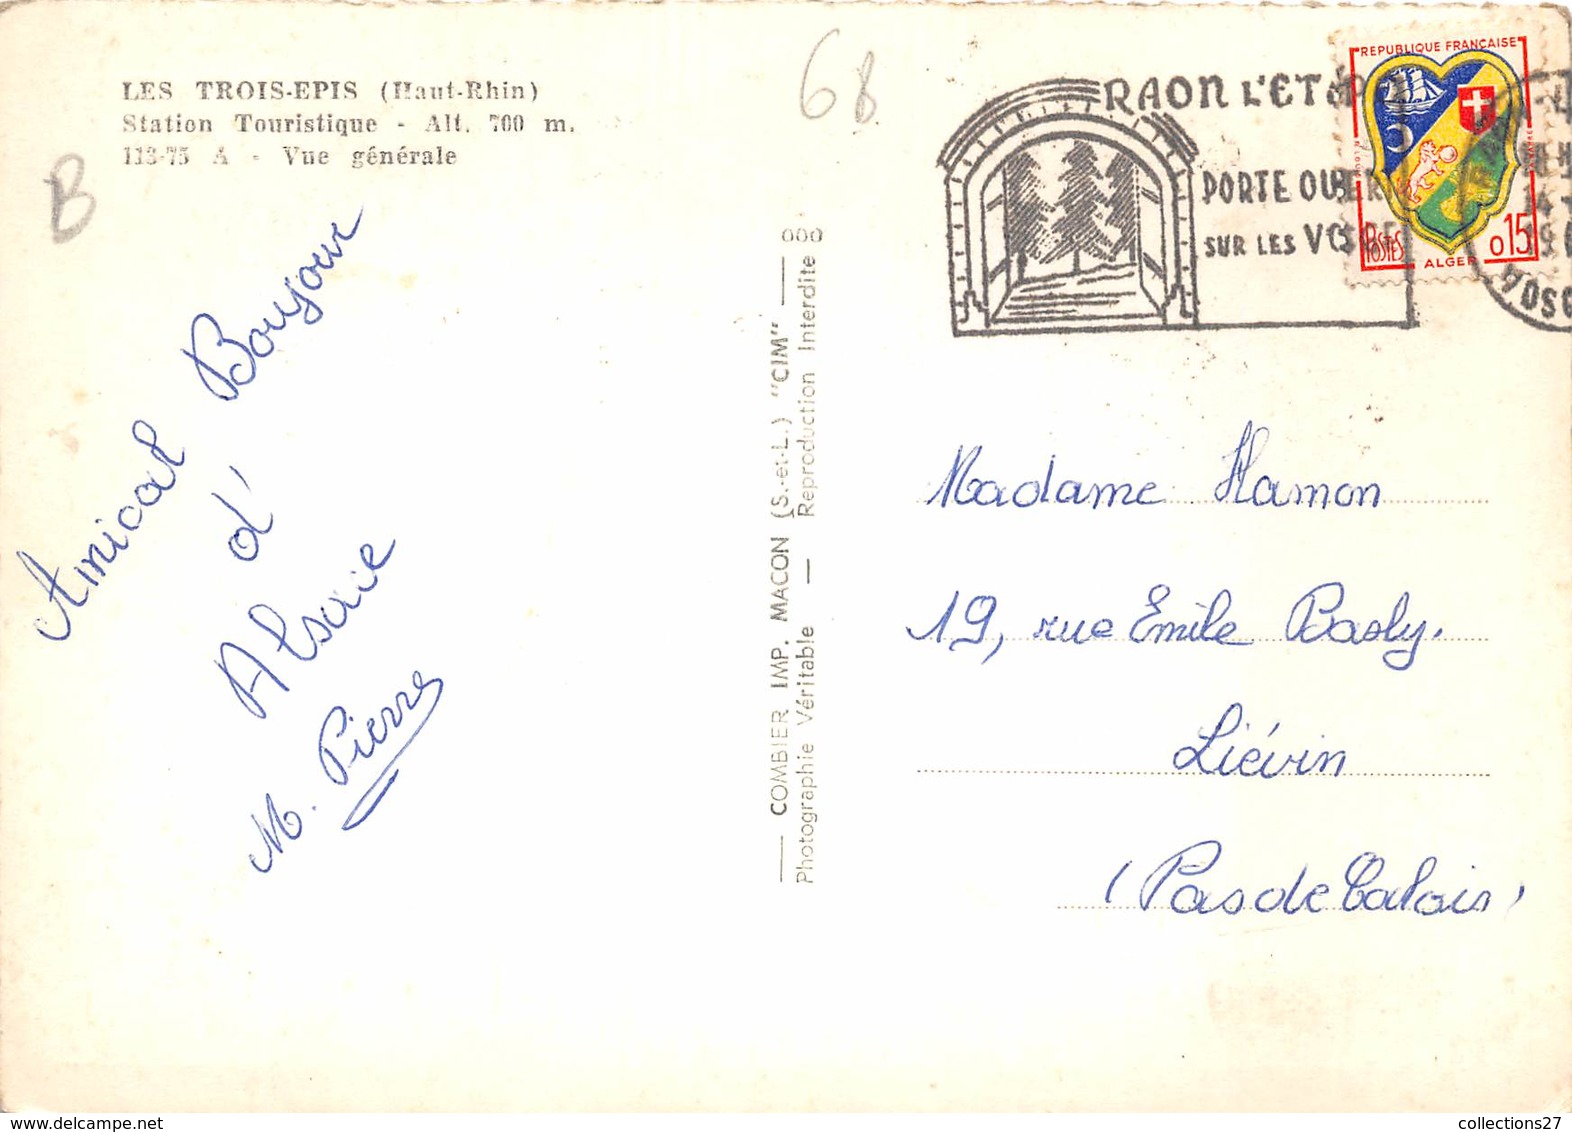 LES TROIS-EPIS (Haut-Rhin)
Station Touristique - Alt. 700 m.
113-75 A - Vue générale
B
68
Amical Boujour
d'
Alsace
M. Pierre
COMBIER IMP. MACON (S.-et-L.) "CIM"
Photographie Véritable — Reproduction Interdite
000
RAON L'ETAP
PORTE OUVER
SUR LES VOSGE
REPUBLIQUE FRANÇAISE
POSTES
ALGER
0,15
14
19
VOSG
Madame Hamon
19, rue Emile Basly.
Liévin
(Pas de Calais)
collections27